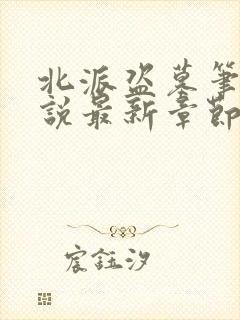 北派盗墓筆
說最新章節
宸鈺汐